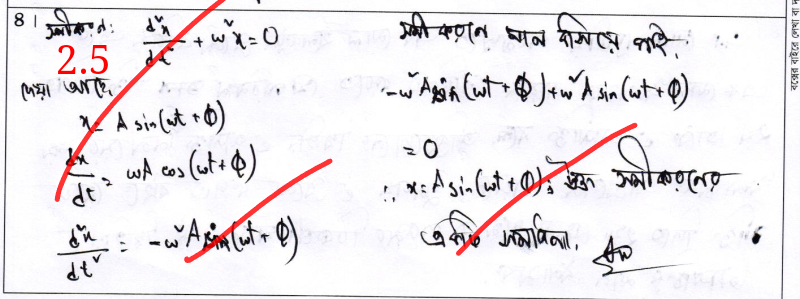 8| সমীকরণ: d²x/dt² + ω²x = 0
2.5
দেয়া আছে,
x = A sin(ωt + φ)
dx/dt = ωA cos(ωt + φ)
d²x/dt² = -ω²A sin(ωt + φ)
সমীকরণে মান বসিয়ে পাই,
-ω²A sin(ωt + φ) + ω²A sin(ωt + φ)
= 0
∴ x = A sin(ωt + φ); উক্ত সমীকরণের
একটি সমাধান।